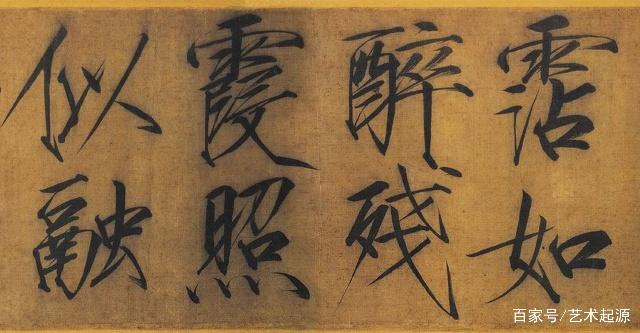 霑如
醉残
霞照
似融
百家号/艺术起源